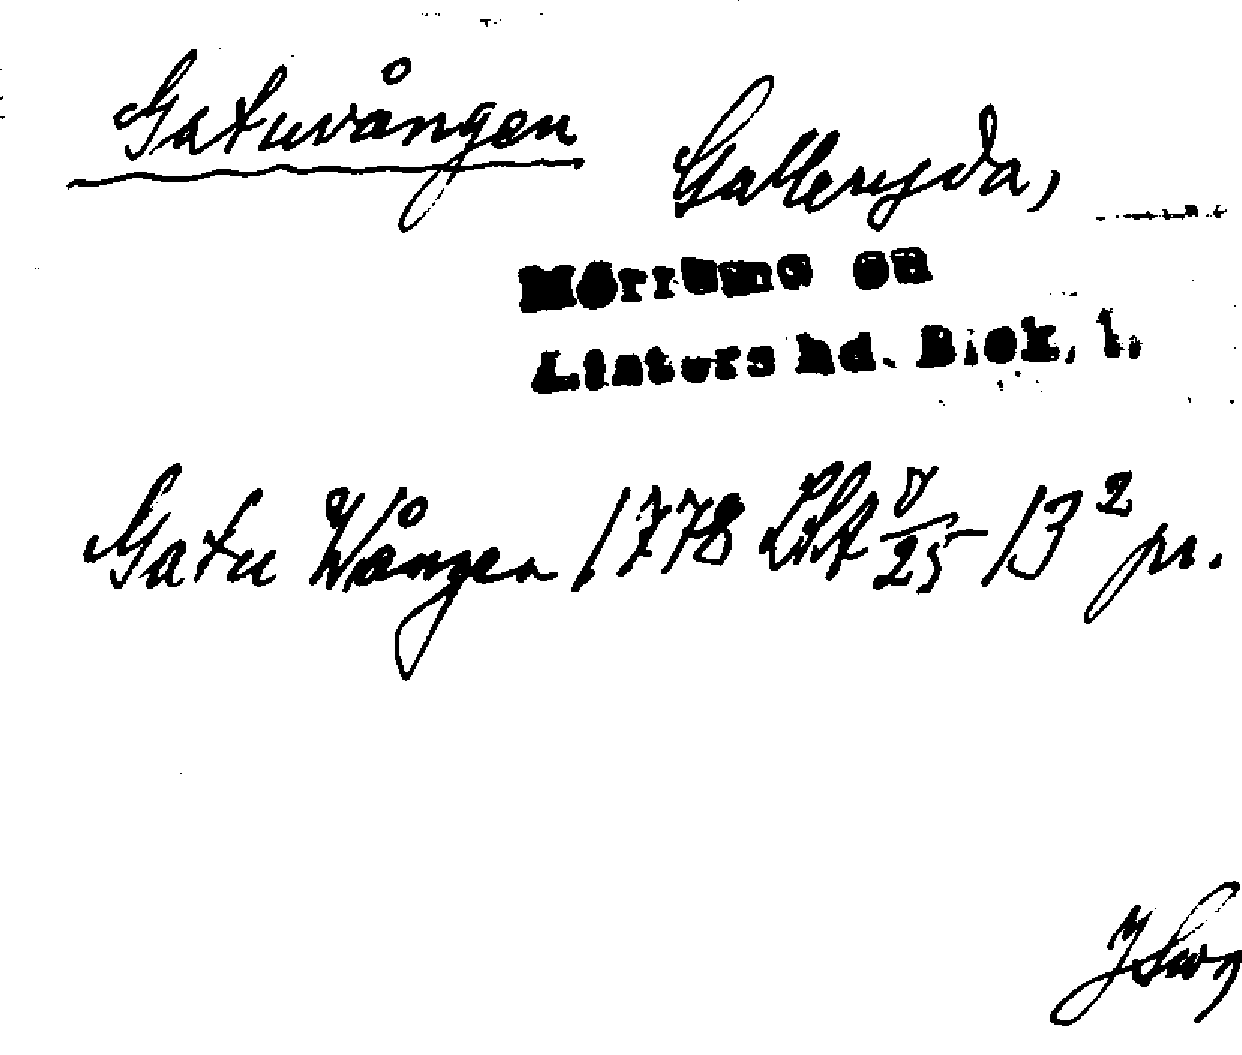 Gatuvången
Galleryda,
Mörrums sn
Listers hd. Blek. l.
Gatu Wången 1778 LSA 8/25-13² pr.